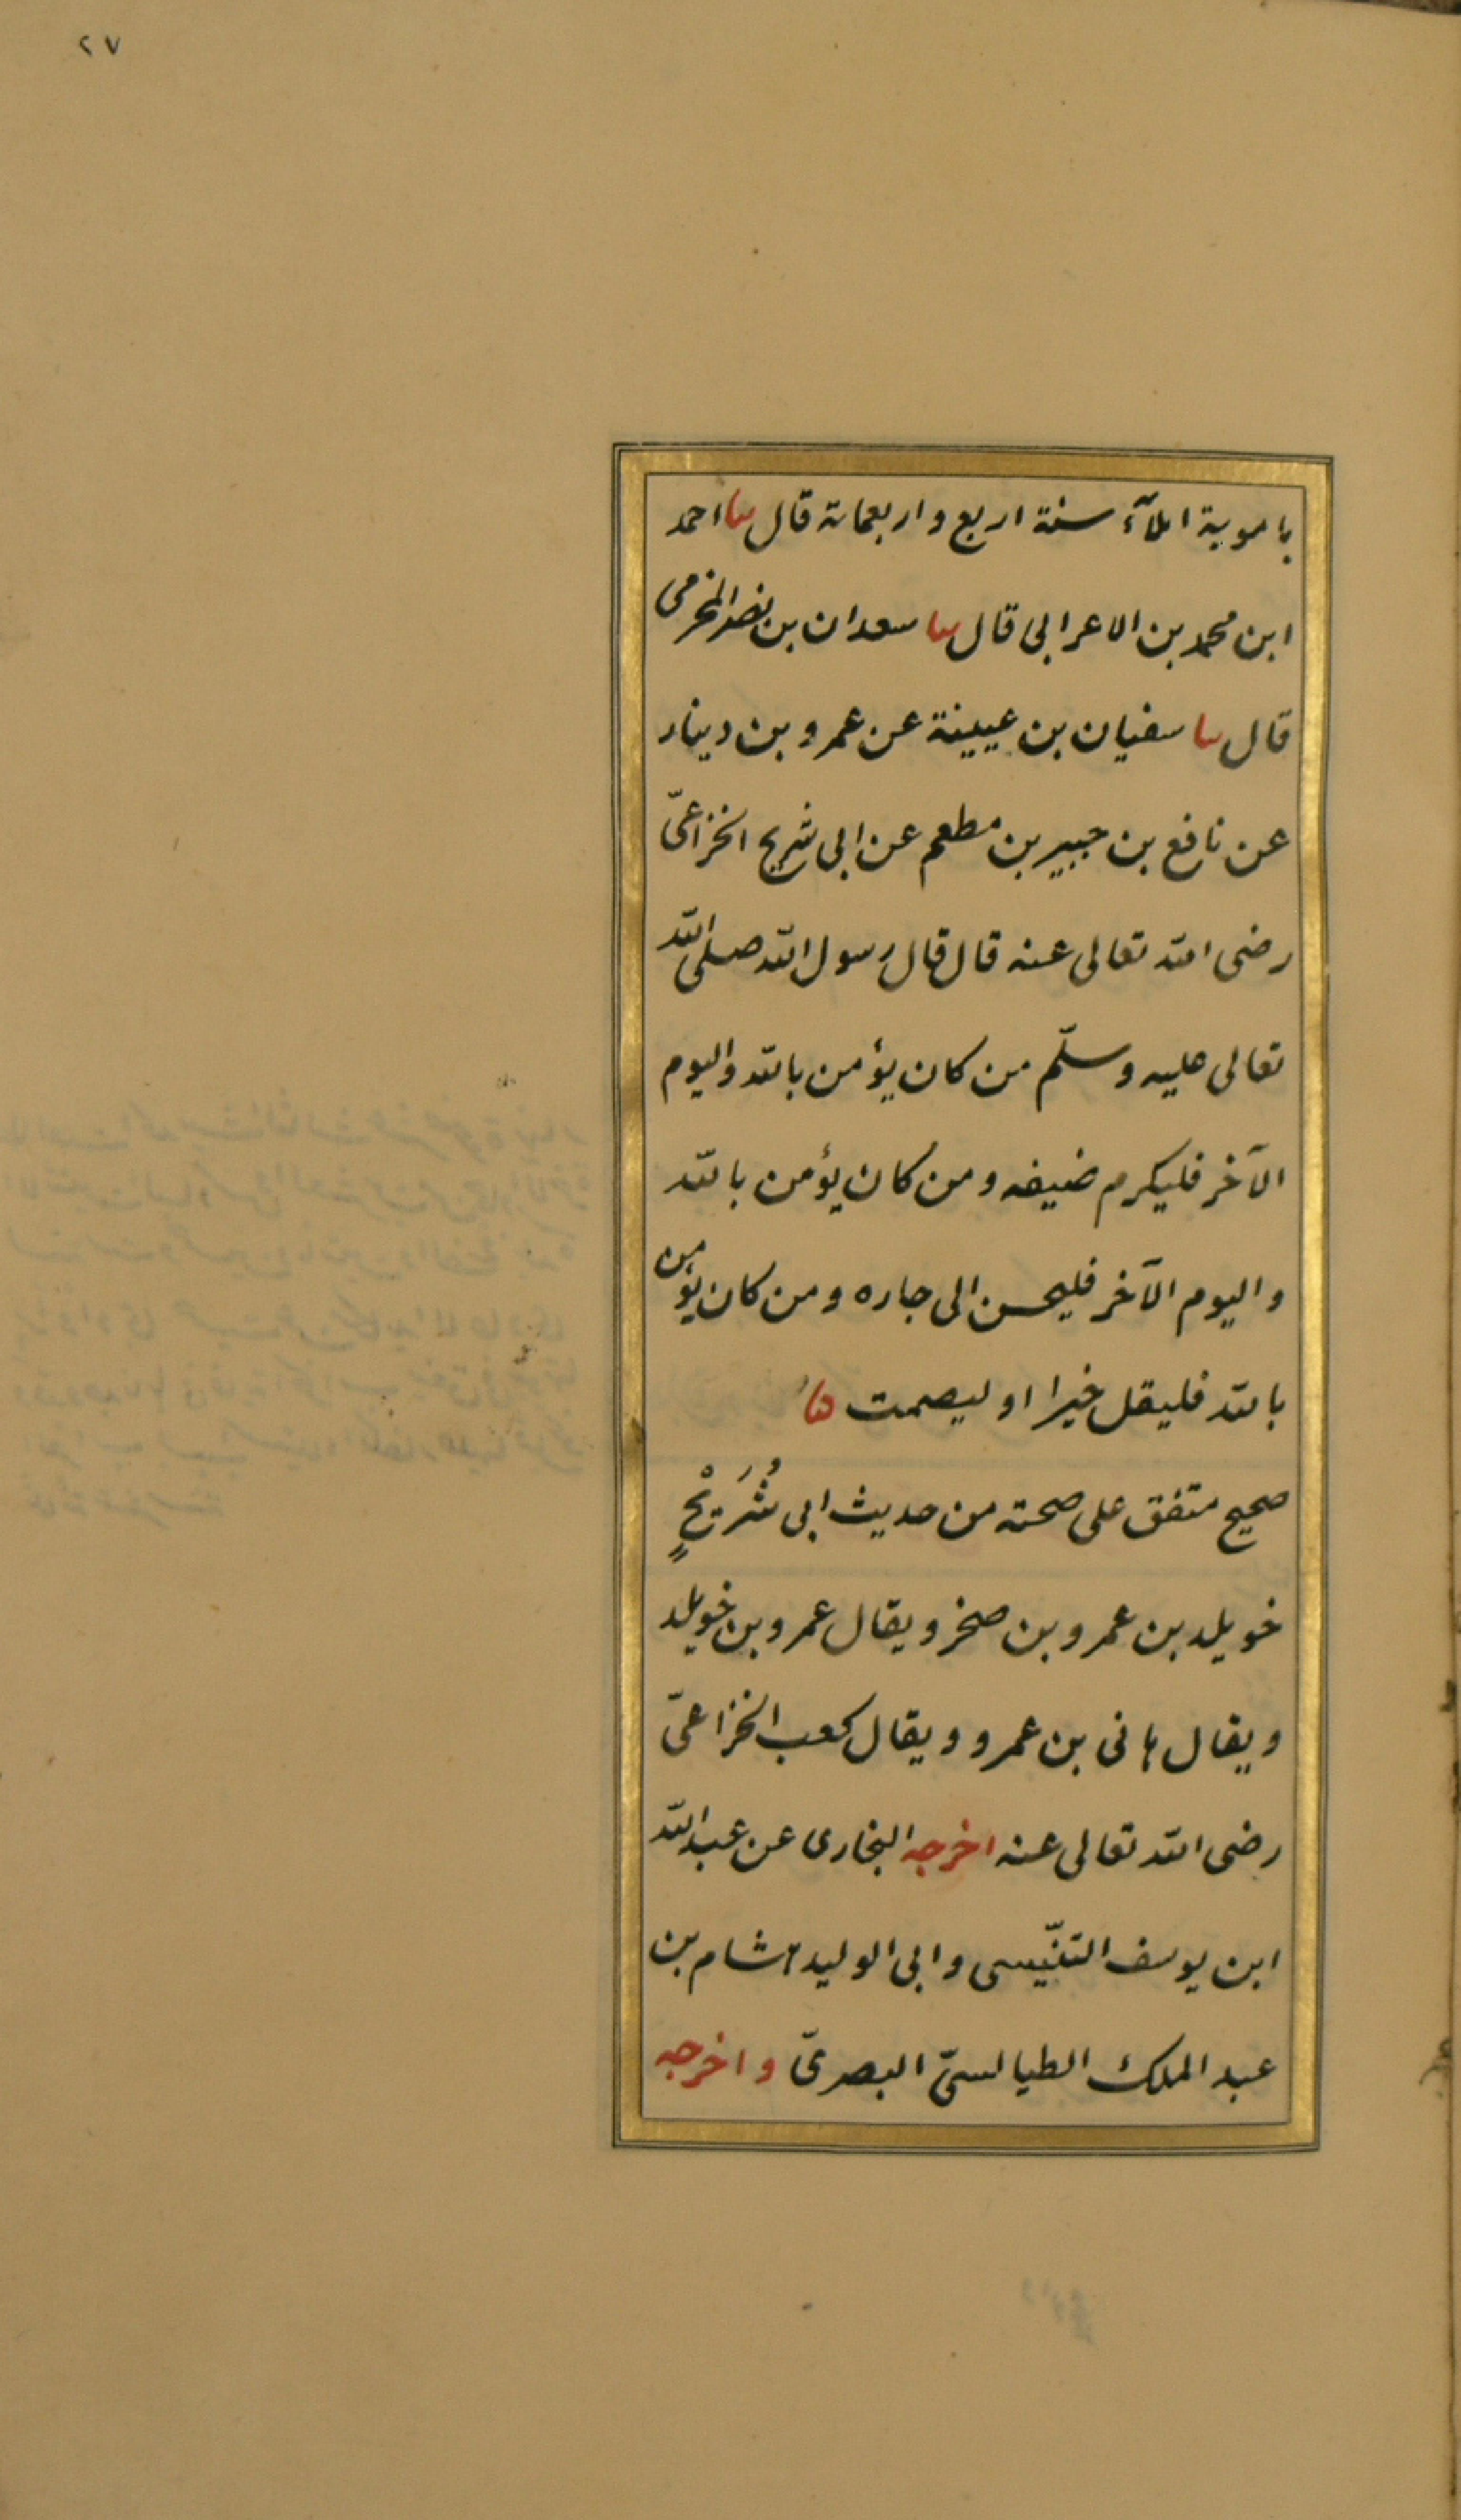 ٢٧
باموية املآء سنة اربع واربعمائة قال سا احمد
ابن محمد بن الاعرابى قال سا سعدان بن نصر المخرمى
قال سا سفيان بن عيينة عن عمرو بن دينار
عن نافع بن جبير بن مطعم عن ابى شريح الخزاعىّ
رضى الله تعالى عنه قال قال رسول الله صلى الله
تعالى عليه وسلّم من كان يؤمن بالله واليوم
الآخر فليكرم ضيفه ومن كان يؤمن بالله
واليوم الآخر فليحسن الى جاره ومن كان يؤمن
بالله فليقل خيرا او ليصمت
صحيح متفق على صحته من حديث ابى شُرَيْحٍ
خويلد بن عمرو بن صخر ويقال عمرو بن خويلد
ويقال هانى بن عمرو ويقال كعب الخزاعىّ
رضى الله تعالى عنه اخرجه البخارى عن عبد الله
ابن يوسف التنّيسى وابى الوليد هشام بن
عبد الملك الطيالسىّ البصرىّ واخرجه